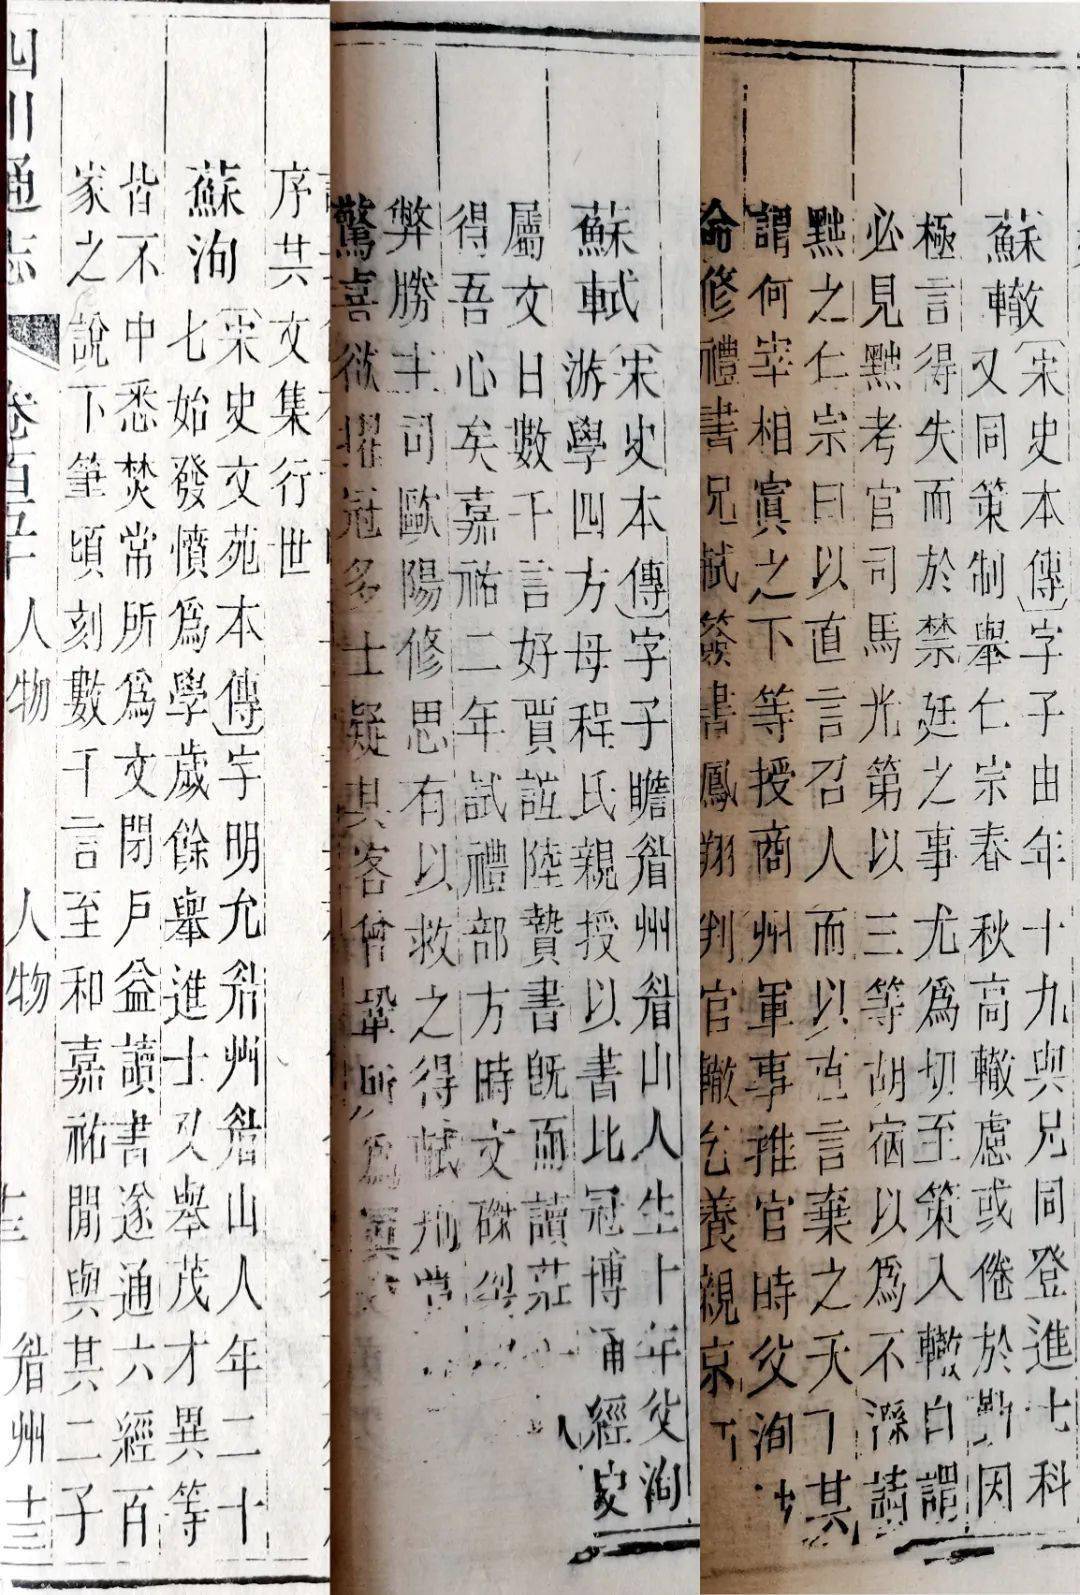 序其文集行世
蘇洵〔宋史文苑本傳〕字明允眉州眉山人年二十
七始發憤爲學歲餘舉進士又舉茂才異等
皆不中悉焚常所爲文閉戶益讀書遂通六經百
家之說下筆頃刻數千言至和嘉祐閒與其二子
四川通志 卷百五十 人物 人物 十三 眉州十三
蘇軾〔宋史本傳〕字子瞻眉州眉山人生十年父洵
游學四方母程氏親授以書比冠博通經史
屬文日數千言好賈誼陸贄書旣而讀莊
得吾心矣嘉祐二年試禮部方時文磔裂
弊勝主司歐陽修思有以救之得軾刑賞
驚喜欲擢冠多士疑其客曾鞏所爲寘
蘇轍〔宋史本傳〕字子由年十九與兄同登進士科
又同策制舉仁宗春秋高轍慮或倦於勤因
極言得失而於禁廷之事尤爲切至策入轍自謂
必見黜考官司馬光第以三等胡宿以爲不遜請
黜之仁宗曰以直言召人而以直言棄之天下其
謂何宰相寘之下等授商州軍事推官時父洵
命修禮書兄軾簽書鳳翔判官轍乞養親京